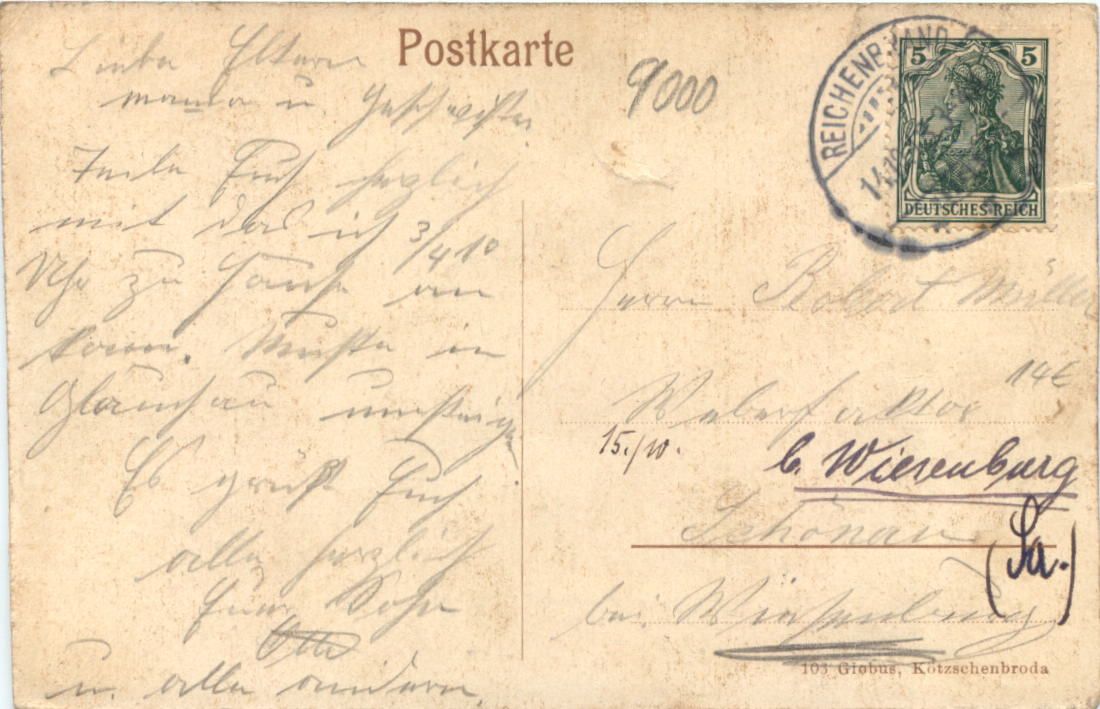 Postkarte
9000
REICHENBRAND
14.10
5 5
DEUTSCHES REICH
Liebe Eltern
u. Geschwister
Teile Euch herzlich
mit das ich 3/4 10
Uhr zu Hause an
komm. Musste in
Glauchau umsteigen
Es grüßt Euch
alle herzlich
Euer Sohn
Otto
u. alle andern.
Herrn Robert Müller
14€
Weberfaktor
15./10.
b. Wiesenburg
Schönau
(Sa.)
bei Wiesenburg
103 Globus, Kötzschenbroda